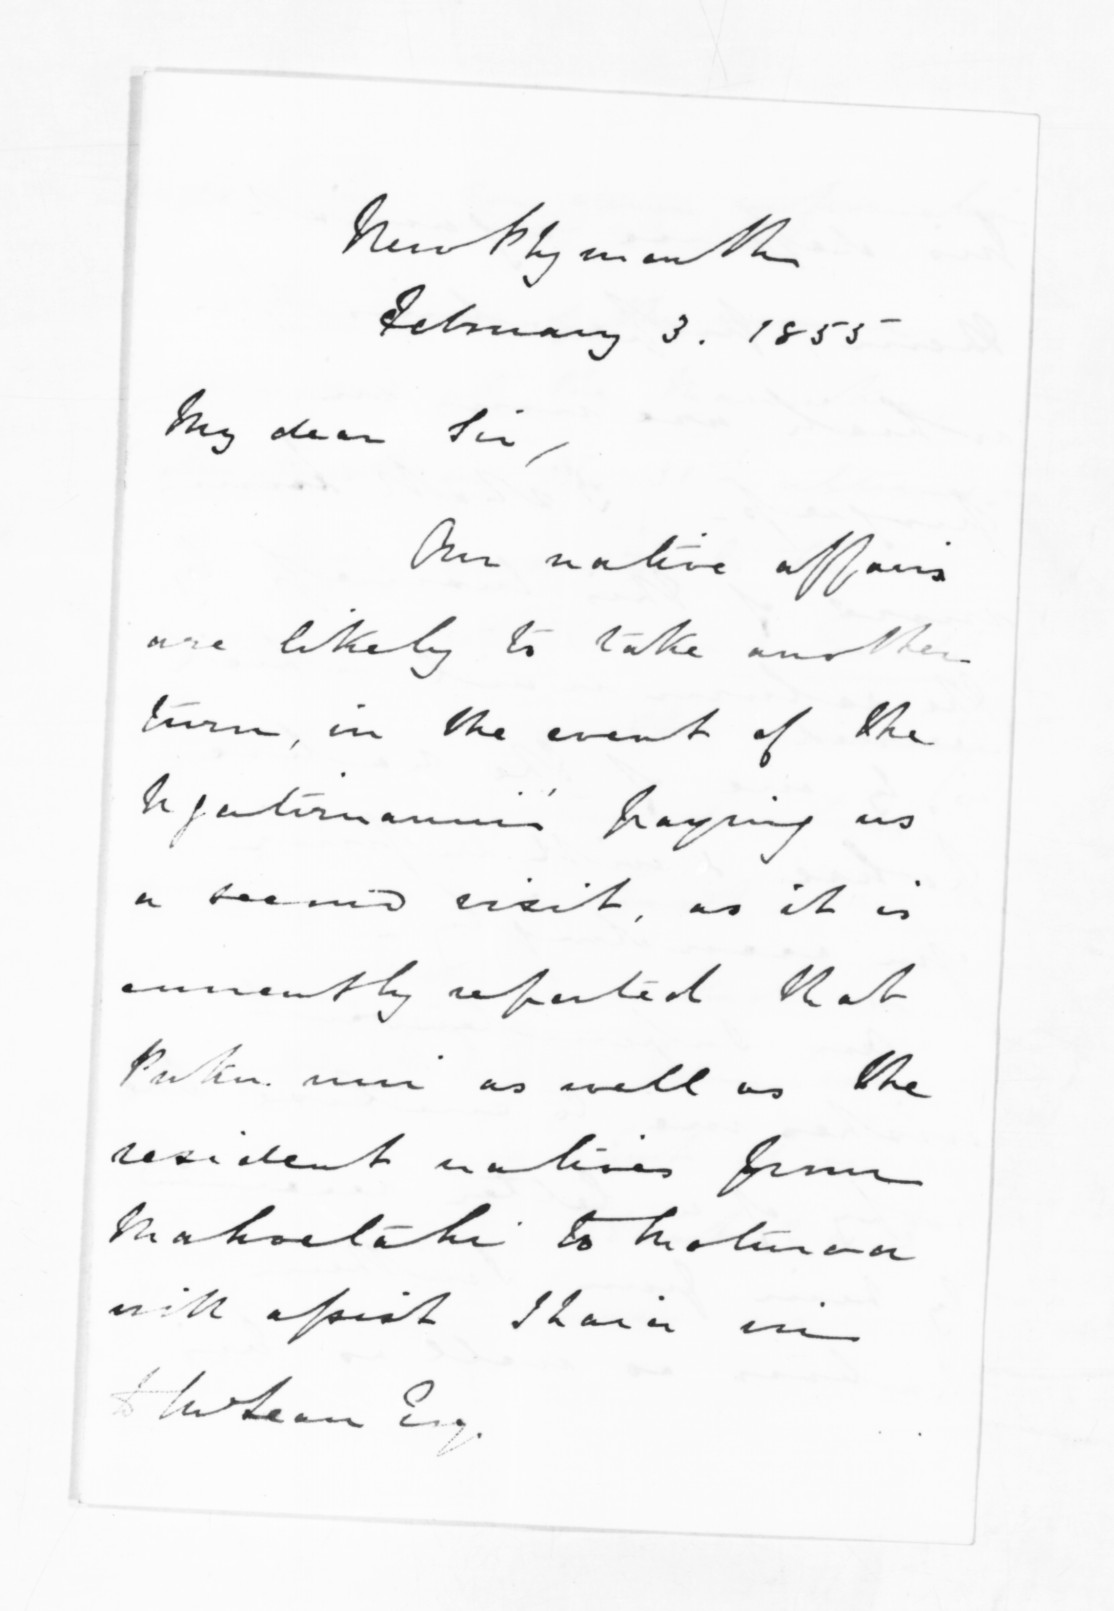 New Plymouth
February 3. 1855
My dear Sir,
Our native affairs
are likely to take another
turn, in the event of the
Ngatiruanui paying us
a second visit, as it is
currently reported that
Puku. nui as well as the
resident natives from
Mahoetahi to Motunoa
will assist Ihaia in
McLean Esq.